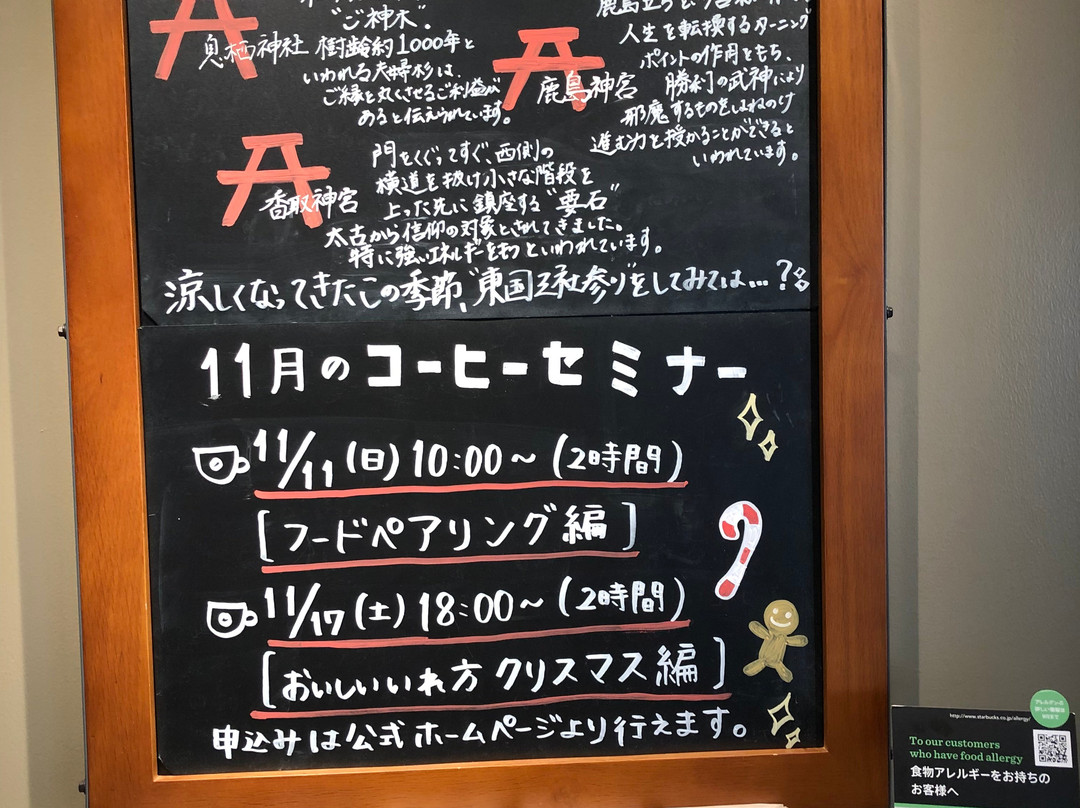 "ご神木"。
息栖神社 樹齢約1000年と
いわれる夫婦杉は、
ご縁と丸くさせるご利益が
あると伝えられています。
人生を転換するターニング
ポイントの作用をもち、
鹿島神宮 勝利の武神により
邪魔するものをはねのけ
進む力を授かることができると
いわれています。
門をくぐってすぐ、西側の
横道を抜け小さな階段を
香取神宮 上った先に鎮座する"要石"
太古から信仰の対象とされてきました。
特に強いエネルギーをもつといわれています。
涼しくなってきたこの季節、"東国三社参り"をしてみては…?
11月のコーヒーセミナー
11/11(日)10:00~(2時間)
[フードペアリング編]
11/17(土)18:00~(2時間)
[おいしいいれ方 クリスマス編]
申込みは公式ホームページより行えます。
http://www.starbucks.co.jp/allergy/
To our customers
who have food allergy
食物アレルギーをお持ちの
お客様へ